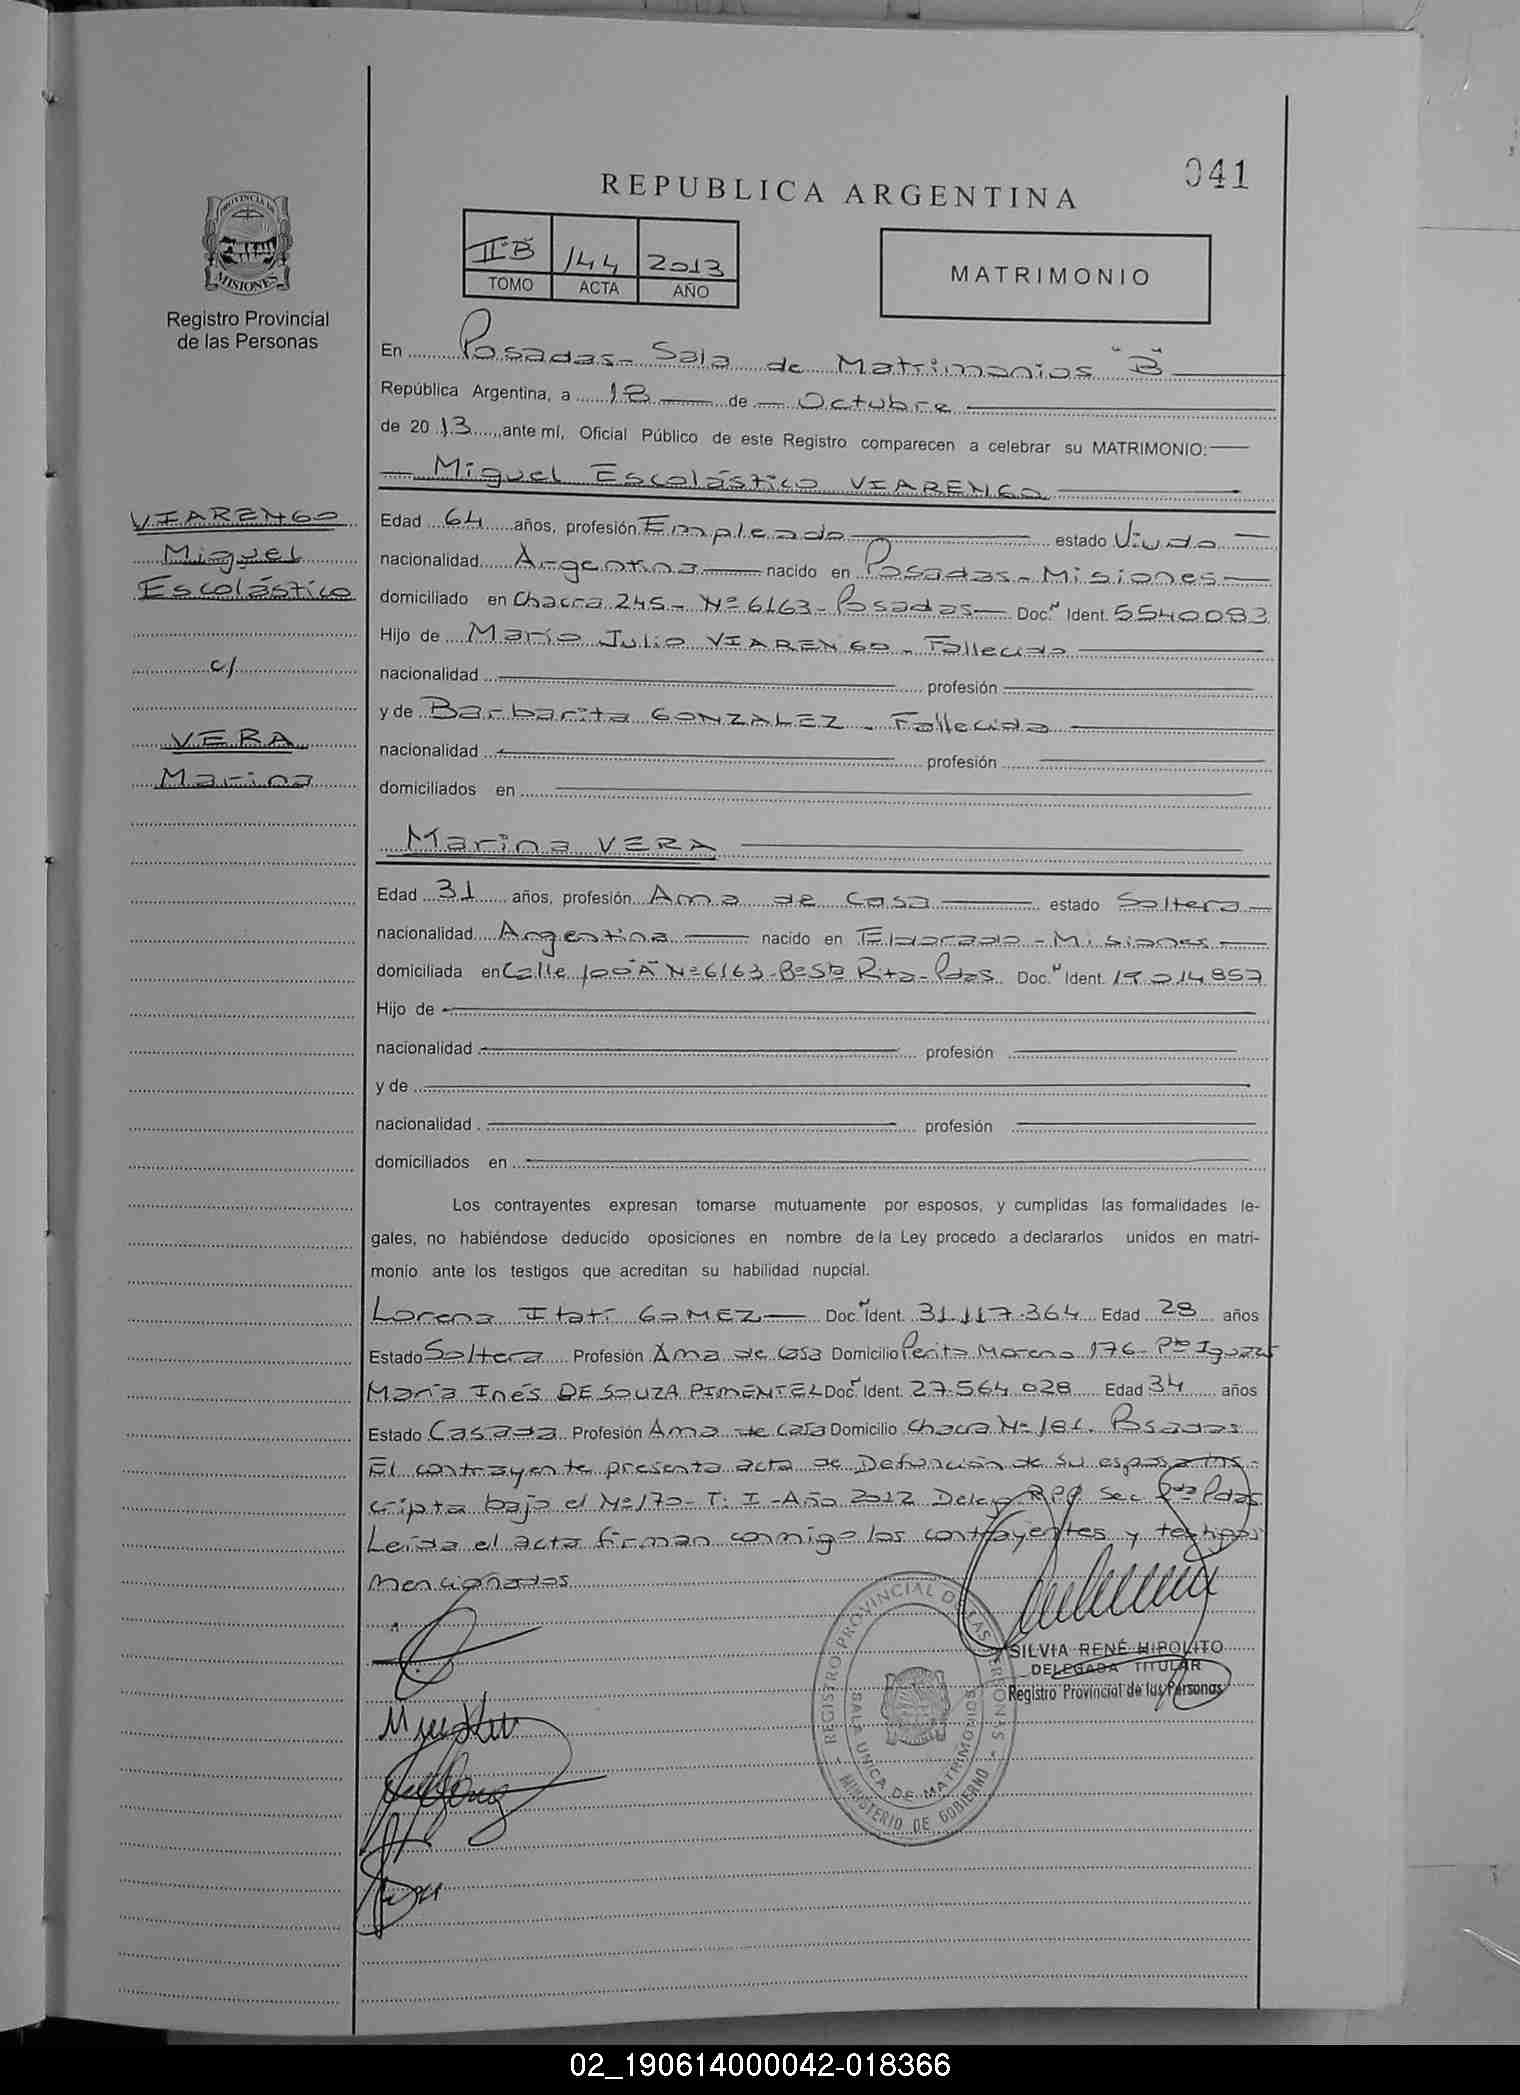 041
REPUBLICA ARGENTINA
PROVINCIA DE
MISIONES
Registro Provincial
de las Personas
II "B" 144 2013
TOMO ACTA AÑO
MATRIMONIO
En Posadas - Sala de Matrimonios "B"
República Argentina, a 18 de Octubre
de 2013, ante mí, Oficial Público de este Registro comparecen a celebrar su MATRIMONIO:
Miguel Escolástico VIARENGO
VIARENGO
Miguel
Escolástico
c/
VERA
Marina
Edad 64 años, profesión Empleado estado Viudo
nacionalidad Argentina nacido en Posadas - Misiones
domiciliado en Chacra 245 - Nº 6163 - Posadas Doc. Ident. 5540083
Hijo de Mario Julio VIARENGO - Fallecido
nacionalidad profesión
y de Barbarita GONZALEZ - Fallecida
nacionalidad profesión
domiciliados en
Marina VERA
Edad 31 años, profesión Ama de Casa estado Soltera
nacionalidad Argentina nacido en Eldorado - Misiones
domiciliada en Calle 100 "A" Nº 6163 - Bº Sta Rita - Pdas. Doc. Ident. 19.014857
Hijo de
nacionalidad profesión
y de
nacionalidad profesión
domiciliados en
Los contrayentes expresan tomarse mutuamente por esposos, y cumplidas las formalidades le-
gales, no habiéndose deducido oposiciones en nombre de la Ley procedo a declararlos unidos en matri-
monio ante los testigos que acreditan su habilidad nupcial.
Lorena Itatí GOMEZ Doc. Ident. 31.117.364 Edad 28 años
Estado Soltera Profesión Ama de Casa Domicilio Perito Moreno 176 - Pto Iguazú
María Inés DE SOUZA PIMENTEL Doc. Ident. 27.564.028 Edad 34 años
Estado Casada Profesión Ama de Casa Domicilio Chacra Nº 181. Posadas
El contrayente presenta acta de Defunción de su esposa ins-
cripta bajo el Nº 170 - T: I - Año 2012 Deleg. RPP Sec. Pdas
Leída el acta firman conmigo los contrayentes y testigos
mencionados
SILVIA RENÉ HIPOLITO
DELEGADA TITULAR
Registro Provincial de las Personas
REGISTRO PROVINCIAL DE LAS PERSONAS
SALA UNICA DE MATRIMONIOS
MINISTERIO DE GOBIERNO
02_190614000042-018366